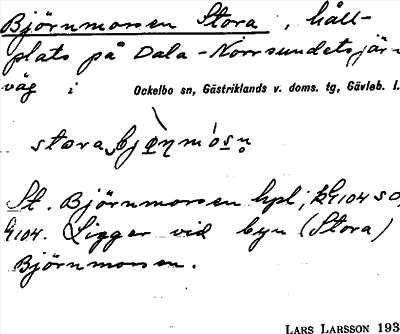 Björnmossen Stora, håll-
plats på Dala-Norrsundets jär-
väg i Ockelbo sn, Gästriklands v. doms. tg, Gävleb. l.
stora
St. Björnmossen hpl; k G104 SO,
G104. Ligger vid byn (Stora)
Björnmossen.
LARS LARSSON 193